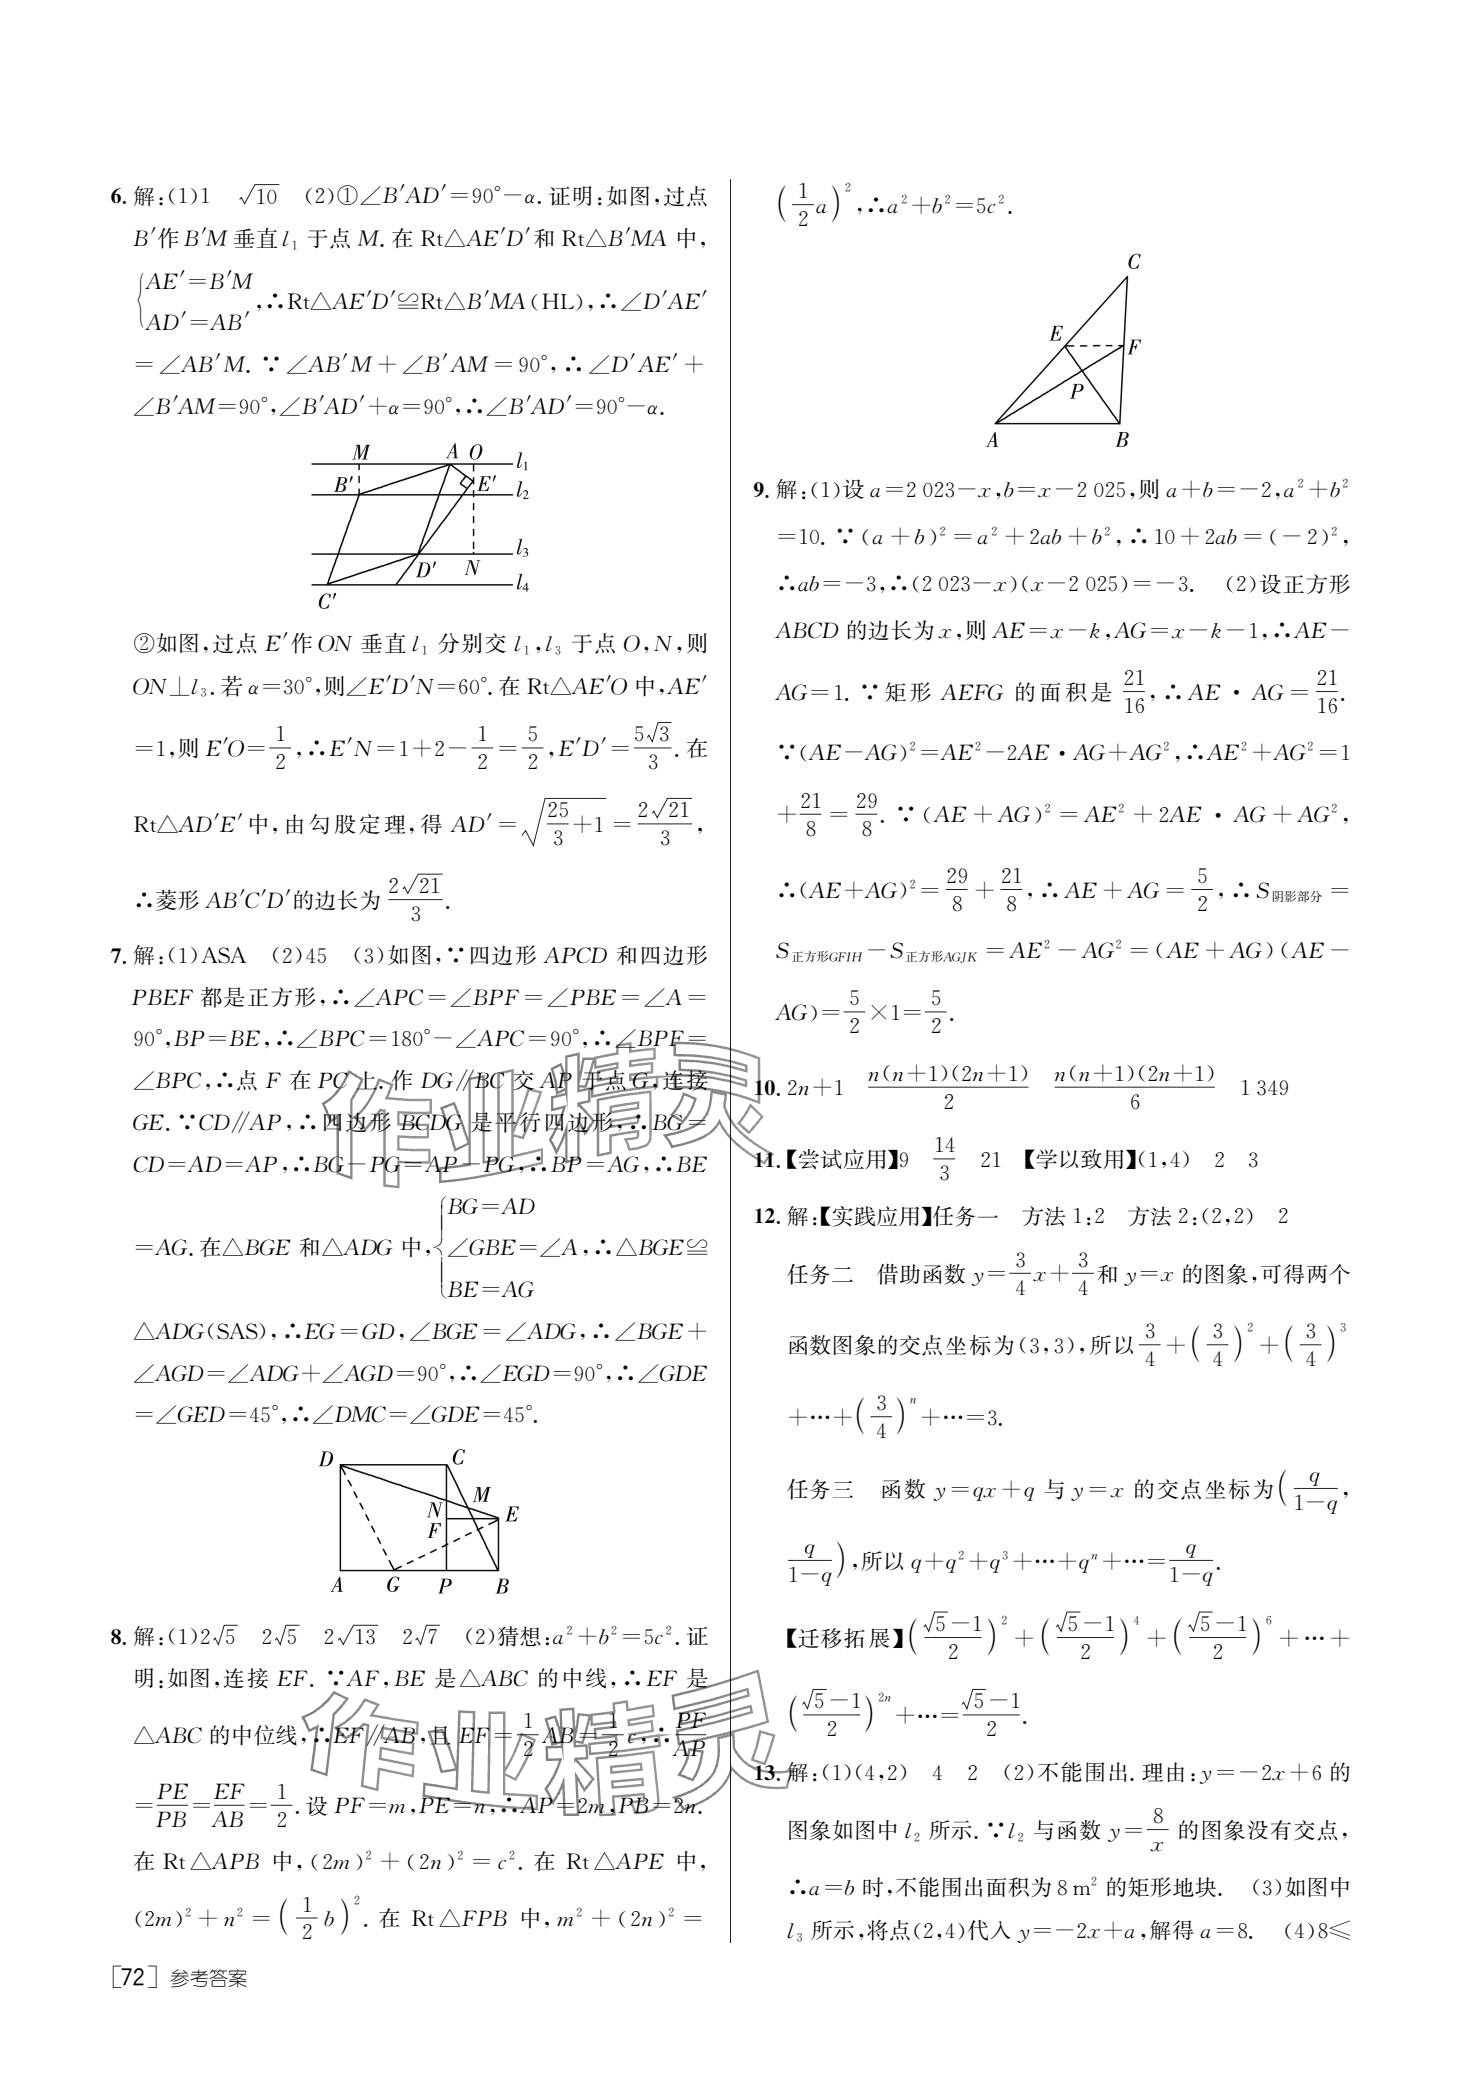 6. 解:(1)1 √10 (2)①∠B′AD′=90°-α.证明:如图,过点
B′作B′M垂直l₁于点M.在Rt△AE′D′和Rt△B′MA中,
{AE′=B′M
AD′=AB′ ,∴Rt△AE′D′≌Rt△B′MA(HL),∴∠D′AE′
=∠AB′M.∵∠AB′M+∠B′AM=90°,∴∠D′AE′+
∠B′AM=90°,∠B′AD′+α=90°,∴∠B′AD′=90°-α.
M A O l₁
B′ E′ l₂
l₃
D′ N l₄
C′
②如图,过点E′作ON垂直l₁分别交l₁,l₃于点O,N,则
ON⊥l₃.若α=30°,则∠E′D′N=60°.在Rt△AE′O中,AE′
=1,则E′O=1/2,∴E′N=1+2-1/2=5/2,E′D′=5√3/3.在
Rt△AD′E′中,由勾股定理,得AD′=√(25/3+1)=2√21/3,
∴菱形AB′C′D′的边长为2√21/3.
7. 解:(1)ASA (2)45 (3)如图,∵四边形APCD和四边形
PBEF都是正方形,∴∠APC=∠BPF=∠PBE=∠A=
90°,BP=BE,∴∠BPC=180°-∠APC=90°,∴∠BPF=
∠BPC,∴点F在PC上.作DG∥BC交AP于点G,连接
GE.∵CD∥AP,∴四边形BCDG是平行四边形,∴BG=
CD=AD=AP,∴BG-PG=AP-PG,∴BP=AG,∴BE
{BG=AD
=AG.在△BGE和△ADG中,∠GBE=∠A,∴△BGE≌
BE=AG
△ADG(SAS),∴EG=GD,∠BGE=∠ADG,∴∠BGE+
∠AGD=∠ADG+∠AGD=90°,∴∠EGD=90°,∴∠GDE
=∠GED=45°,∴∠DMC=∠GDE=45°.
D C
M
N E
F
A G P B
8. 解:(1)2√5 2√5 2√13 2√7 (2)猜想:a²+b²=5c².证
明:如图,连接EF.∵AF,BE是△ABC的中线,∴EF是
△ABC的中位线,∴EF∥AB,且EF=1/2AB=1/2c,∴PF/AP
=PE/PB=EF/AB=1/2.设PF=m,PE=n,∴AP=2m,PB=2n.
在Rt△APB中,(2m)²+(2n)²=c².在Rt△APE中,
(2m)²+n²=(1/2b)².在Rt△FPB中,m²+(2n)²=
[72] 参考答案
(1/2a)²,∴a²+b²=5c².
C
E F
P
A B
9. 解:(1)设a=2 023-x,b=x-2 025,则a+b=-2,a²+b²
=10.∵(a+b)²=a²+2ab+b²,∴10+2ab=(-2)²,
∴ab=-3,∴(2 023-x)(x-2 025)=-3. (2)设正方形
ABCD的边长为x,则AE=x-k,AG=x-k-1,∴AE-
AG=1.∵矩形AEFG的面积是21/16,∴AE·AG=21/16.
∵(AE-AG)²=AE²-2AE·AG+AG²,∴AE²+AG²=1
+21/8=29/8.∵(AE+AG)²=AE²+2AE·AG+AG²,
∴(AE+AG)²=29/8+21/8,∴AE+AG=5/2,∴S阴影部分=
S正方形GFIH-S正方形AGJK=AE²-AG²=(AE+AG)(AE-
AG)=5/2×1=5/2.
10. 2n+1 n(n+1)(2n+1)/2 n(n+1)(2n+1)/6 1 349
11.【尝试应用】9 14/3 21 【学以致用】(1,4) 2 3
12. 解:【实践应用】任务一 方法1:2 方法2:(2,2) 2
任务二 借助函数y=3/4x+3/4和y=x的图象,可得两个
函数图象的交点坐标为(3,3),所以3/4+(3/4)²+(3/4)³
+…+(3/4)ⁿ+…=3.
任务三 函数y=qx+q与y=x的交点坐标为(q/(1-q),
q/(1-q)),所以q+q²+q³+…+qⁿ+…=q/(1-q).
【迁移拓展】((√5-1)/2)²+((√5-1)/2)⁴+((√5-1)/2)⁶+…+
((√5-1)/2)²ⁿ+…=(√5-1)/2.
13. 解:(1)(4,2) 4 2 (2)不能围出.理由:y=-2x+6的
图象如图中l₂所示.∵l₂与函数y=8/x的图象没有交点,
∴a=b时,不能围出面积为8 m²的矩形地块. (3)如图中
l₃所示,将点(2,4)代入y=-2x+a,解得a=8. (4)8≤
作业精灵
作业精灵